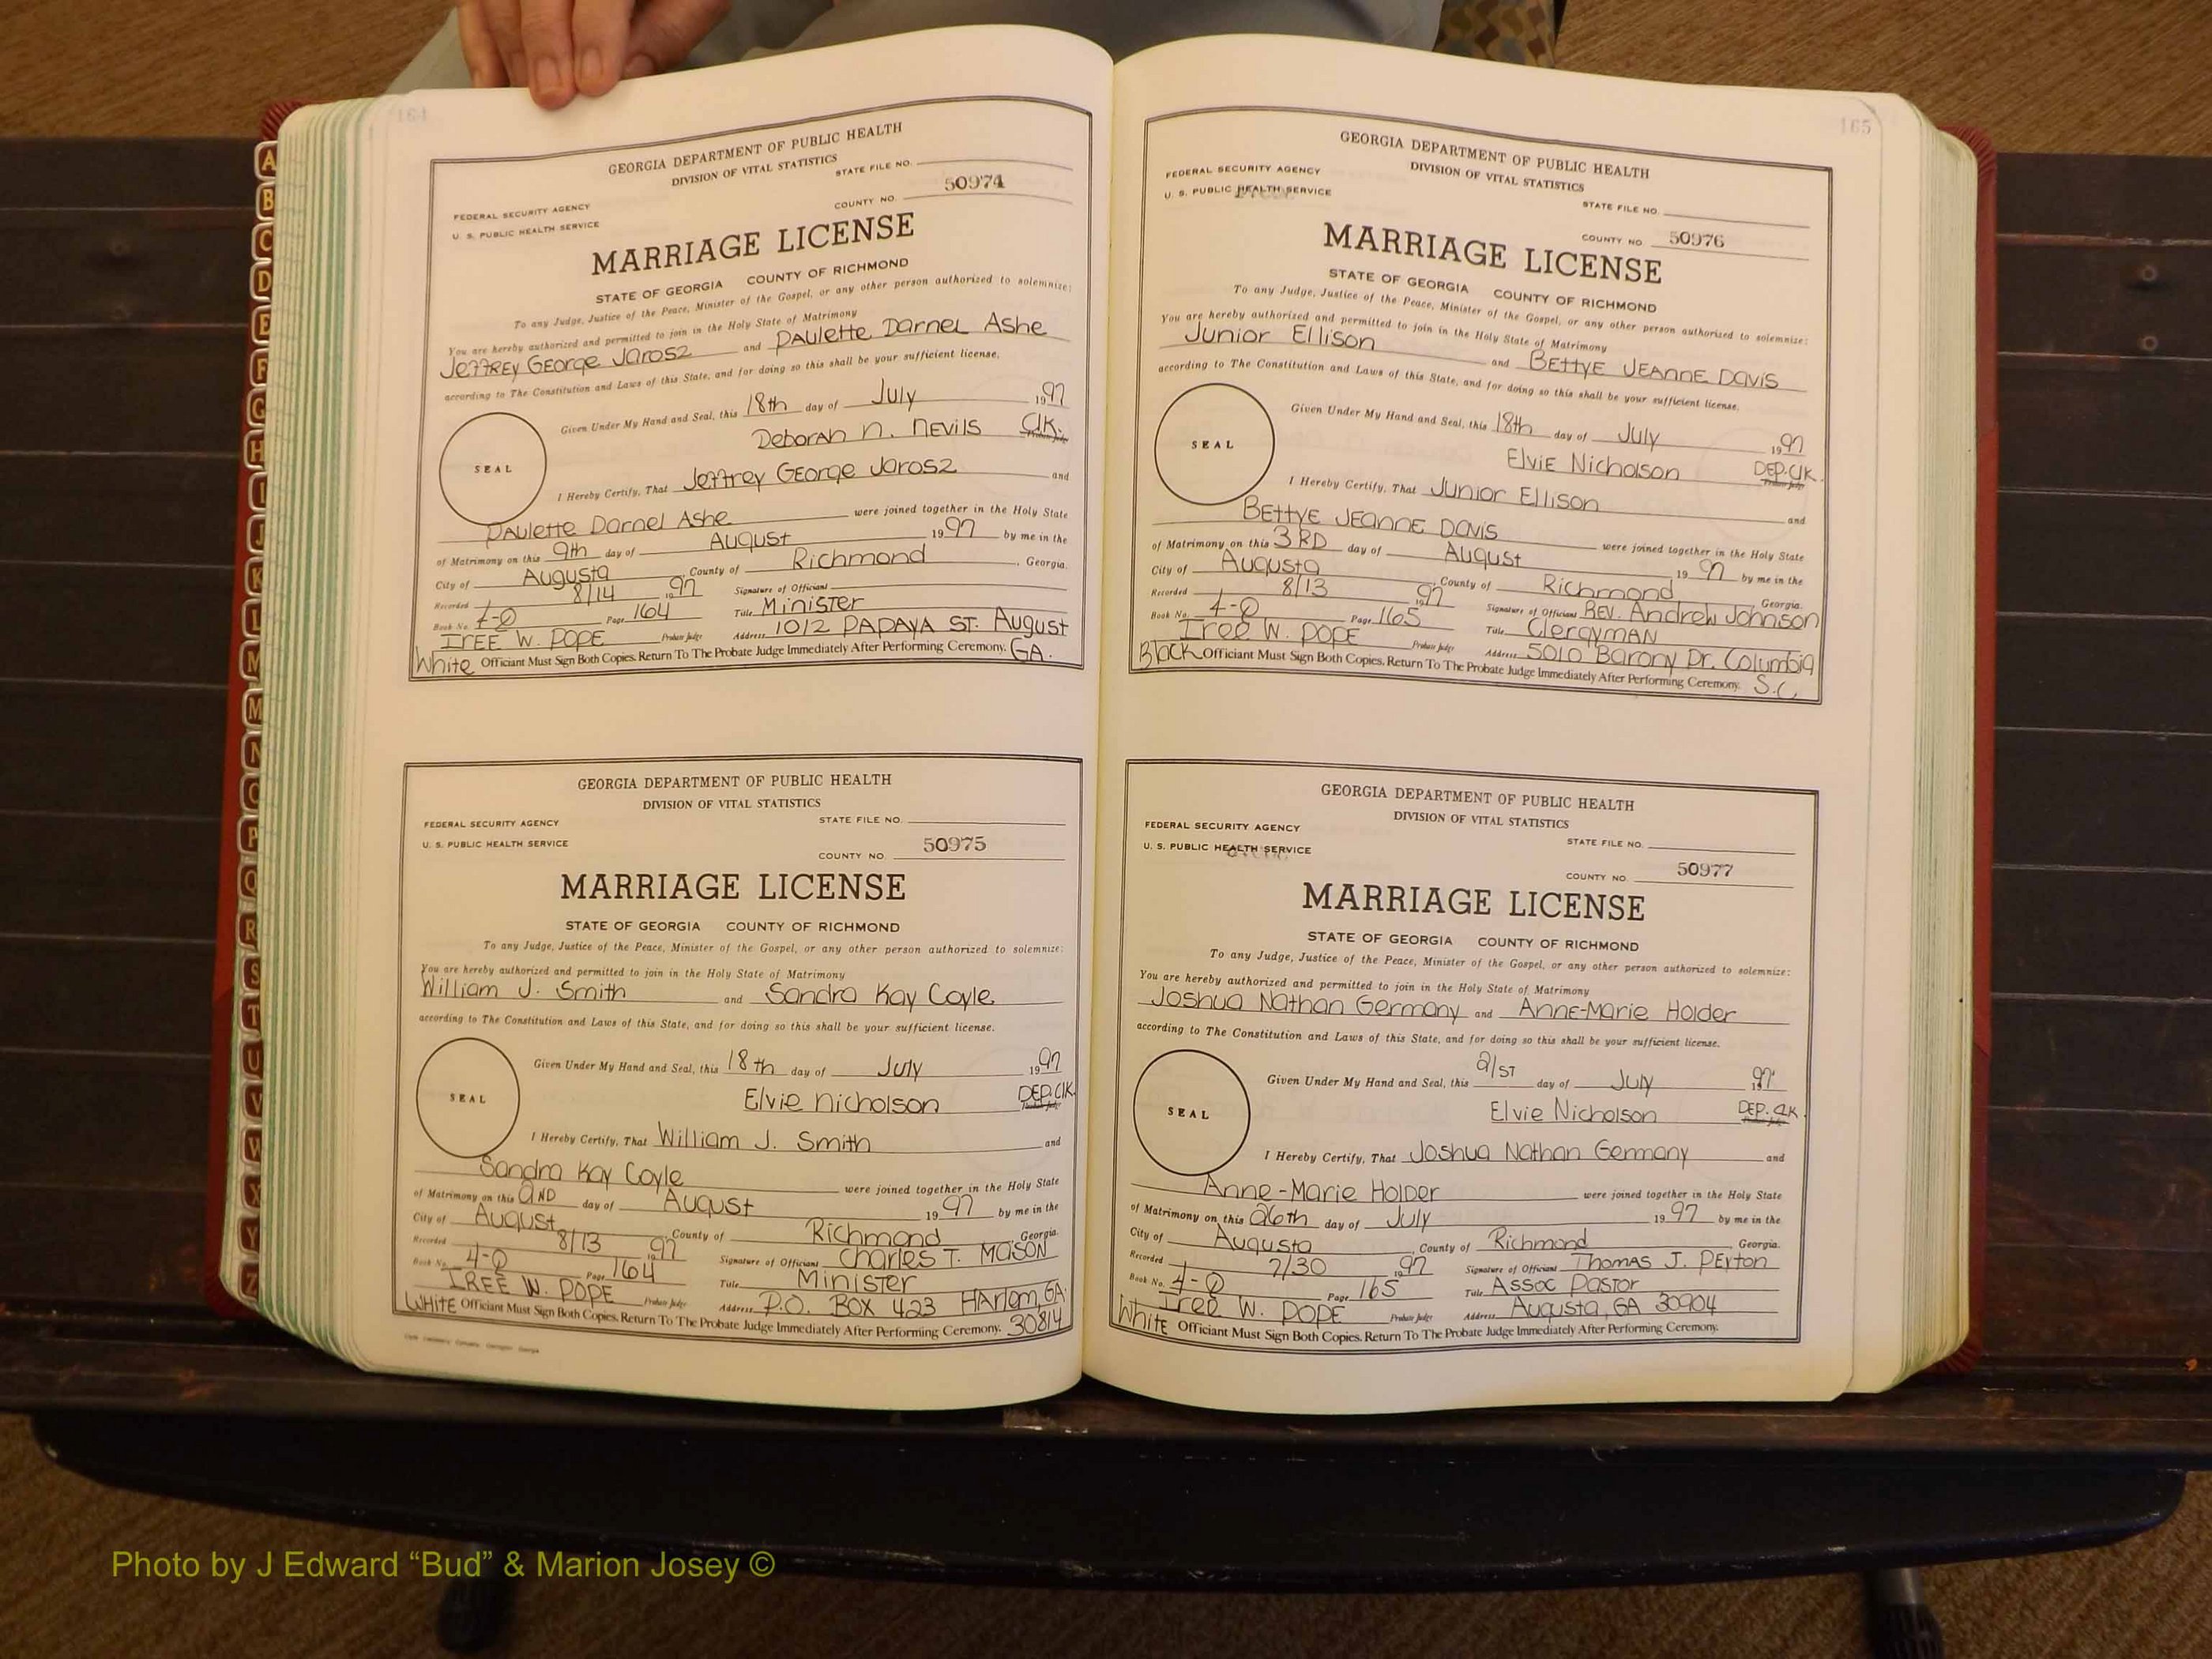 164
GEORGIA DEPARTMENT OF PUBLIC HEALTH
DIVISION OF VITAL STATISTICS
STATE FILE NO.
FEDERAL SECURITY AGENCY
U. S. PUBLIC HEALTH SERVICE
COUNTY NO. 50974
MARRIAGE LICENSE
STATE OF GEORGIA COUNTY OF RICHMOND
To any Judge, Justice of the Peace, Minister of the Gospel, or any other person authorized to solemnize:
You are hereby authorized and permitted to join in the Holy State of Matrimony
Jeffrey George Jarosz and Paulette Darnel Ashe
according to The Constitution and Laws of this State, and for doing so this shall be your sufficient license.
Given Under My Hand and Seal, this 18th day of July 1997
Deborah N. Nevils Clk.
SEAL
I Hereby Certify, That Jeffrey George Jarosz and
Paulette Darnel Ashe were joined together in the Holy State
of Matrimony on this 9th day of August 1997 by me in the
City of Augusta, County of Richmond, Georgia.
Recorded 8/14 1997 Signature of Officiant
Book No. 4-Q Page 164 Title Minister
IREE W. POPE Probate Judge Address 1012 PAPAYA ST. August
White Officiant Must Sign Both Copies. Return To The Probate Judge Immediately After Performing Ceremony. GA.
GEORGIA DEPARTMENT OF PUBLIC HEALTH
DIVISION OF VITAL STATISTICS
FEDERAL SECURITY AGENCY
STATE FILE NO.
U. S. PUBLIC HEALTH SERVICE
COUNTY NO. 50975
MARRIAGE LICENSE
STATE OF GEORGIA COUNTY OF RICHMOND
To any Judge, Justice of the Peace, Minister of the Gospel, or any other person authorized to solemnize:
You are hereby authorized and permitted to join in the Holy State of Matrimony
William J. Smith and Sandra Kay Coyle
according to The Constitution and Laws of this State, and for doing so this shall be your sufficient license.
Given Under My Hand and Seal, this 18th day of July 1997
Elvie Nicholson DEP. Clk.
SEAL
I Hereby Certify, That William J. Smith and
Sandra Kay Coyle were joined together in the Holy State
of Matrimony on this 2ND day of August 1997 by me in the
City of August, County of Richmond, Georgia.
Recorded 8/13 1997 Signature of Officiant Charles T. Mason
Book No. 4-Q Page 164 Title Minister
IREE W. POPE Probate Judge Address P.O. Box 423 Harlem, GA.
WHITE Officiant Must Sign Both Copies. Return To The Probate Judge Immediately After Performing Ceremony. 30814
165
GEORGIA DEPARTMENT OF PUBLIC HEALTH
DIVISION OF VITAL STATISTICS
FEDERAL SECURITY AGENCY
U. S. PUBLIC HEALTH SERVICE
STATE FILE NO.
COUNTY NO 50976
MARRIAGE LICENSE
STATE OF GEORGIA COUNTY OF RICHMOND
To any Judge, Justice of the Peace, Minister of the Gospel, or any other person authorized to solemnize:
You are hereby authorized and permitted to join in the Holy State of Matrimony
Junior Ellison and Bettye Jeanne Davis
according to The Constitution and Laws of this State, and for doing so this shall be your sufficient license.
Given Under My Hand and Seal, this 18th day of July 1997
Elvie Nicholson DEP. Clk.
SEAL
I Hereby Certify, That Junior Ellison and
Bettye Jeanne Davis were joined together in the Holy State
of Matrimony on this 3RD day of August 1997 by me in the
City of Augusta, County of Richmond, Georgia.
Recorded 8/13 1997 Signature of Officiant REV. Andrew Johnson
Book No. 4-Q Page 165 Title Clergyman
Iree W. POPE Probate Judge Address 5010 Barony Dr. Columbia
Black Officiant Must Sign Both Copies. Return To The Probate Judge Immediately After Performing Ceremony. S.C.
GEORGIA DEPARTMENT OF PUBLIC HEALTH
DIVISION OF VITAL STATISTICS
FEDERAL SECURITY AGENCY
U. S. PUBLIC HEALTH SERVICE
STATE FILE NO.
COUNTY NO. 50977
MARRIAGE LICENSE
STATE OF GEORGIA COUNTY OF RICHMOND
To any Judge, Justice of the Peace, Minister of the Gospel, or any other person authorized to solemnize:
You are hereby authorized and permitted to join in the Holy State of Matrimony
Joshua Nathan Germany and Anne-Marie Holder
according to The Constitution and Laws of this State, and for doing so this shall be your sufficient license.
Given Under My Hand and Seal, this 21ST day of July 1997
Elvie Nicholson DEP. Clk.
SEAL
I Hereby Certify, That Joshua Nathan Germany and
Anne-Marie Holder were joined together in the Holy State
of Matrimony on this 26th day of July 1997 by me in the
City of Augusta, County of Richmond, Georgia.
Recorded 7/30 1997 Signature of Officiant Thomas J. Peyton
Book No. 4-Q Page 165 Title Assoc Pastor
Iree W. POPE Probate Judge Address Augusta, GA 30904
White Officiant Must Sign Both Copies. Return To The Probate Judge Immediately After Performing Ceremony.
A
B
C
D
E
F
G
H
I
J
K
L
M
M
N
O
P
Q
R
S
T
U
V
W
X
Y
Z
Photo by J Edward “Bud” & Marion Josey ©